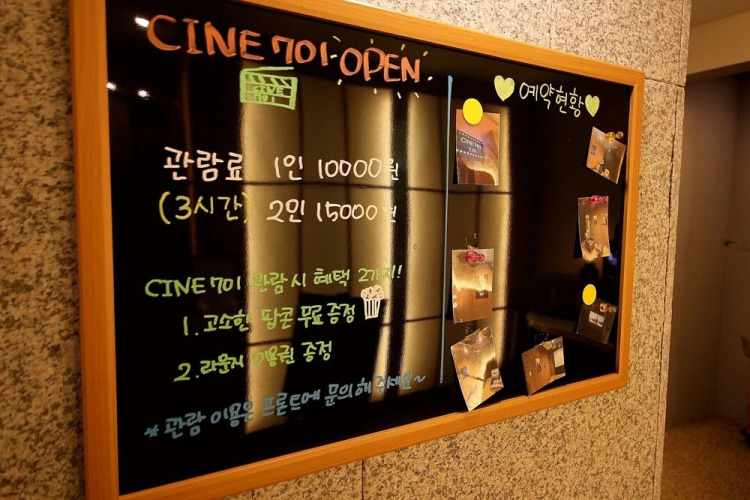 CINE 701 OPEN
CINE 701
관람료 1인 10000원
(3시간) 2인 15000원
CINE 701 관람 시 혜택 2가지!
1. 고소한 팝콘 무료 증정
2. 라운지 이용권 증정
* 관람 이용은 프론트에 문의해주세요~
예약현황
CINE 701